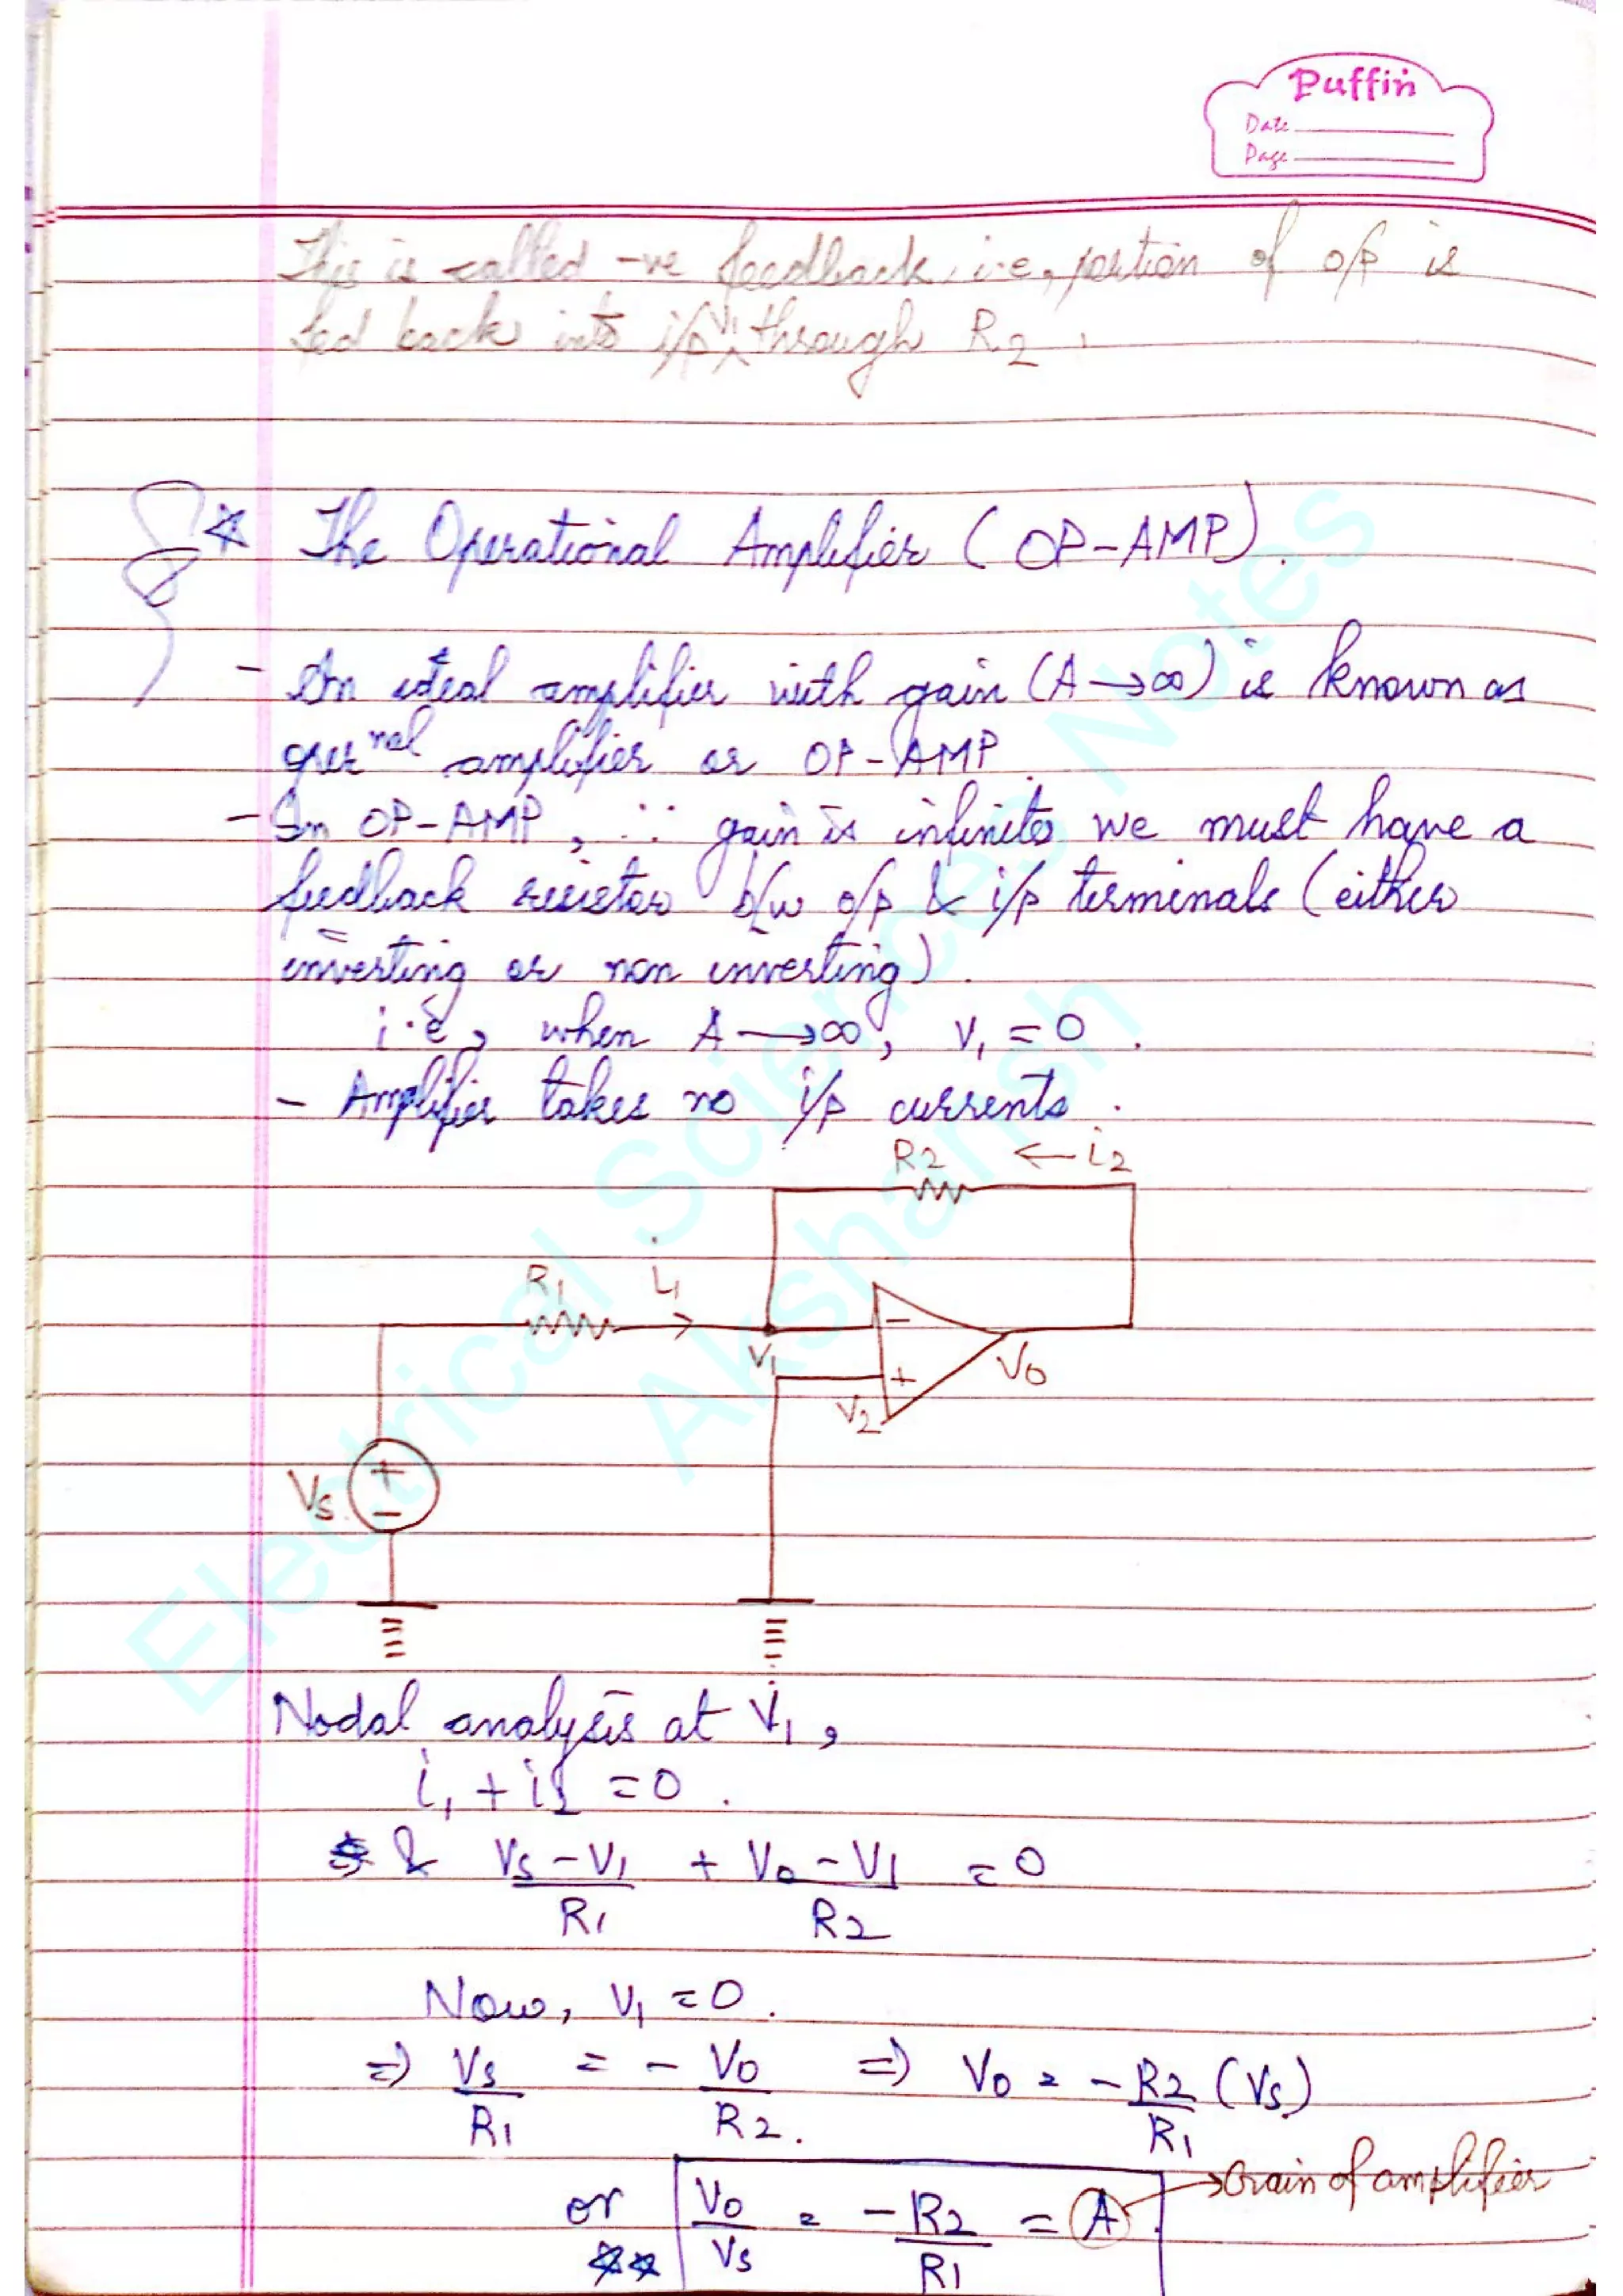 Puffin
Date
Page
This is called -ve feedback i.e, portion of o/p is
fed back into i/p V1 through R2.
* The Operational Amplifier (OP-AMP).
- An ideal amplifier with gain (A→∞) is known as
amplifier or OP-AMP.
- In OP-AMP, ∵ gain is infinite we must have a
feedback resistor b/w o/p & i/p terminals (either
inverting or non inverting).
i.e, when A→∞, V1 = 0.
- Amplifier takes no i/p currents.
R2 ← i2
R1 i1
V1 - Vo
V2 +
Vs + -
Nodal analysis at V1,
i1 + i2 = 0.
& Vs - V1 / R1 + Vo - V1 / R2 = 0
Now, V1 = 0.
⇒ Vs / R1 = - Vo / R2. ⇒ Vo = - R2 / R1 (Vs)
or Vo / Vs = - R2 / R1 = A → Gain of amplifier
**
Electrical Sciences Notes
Aksharansh